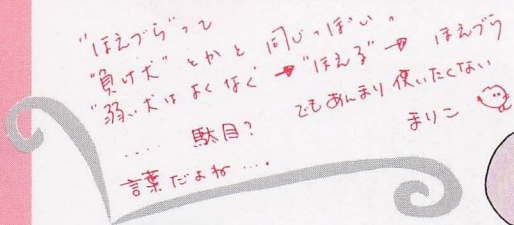 "ほえづら"って
"負け犬"とかと同じっぽい。
"弱い犬はよくなく"→"ほえる"→ほえづら
‥‥駄目？ でもあんまり使いたくない
言葉だよね‥‥
まりこ